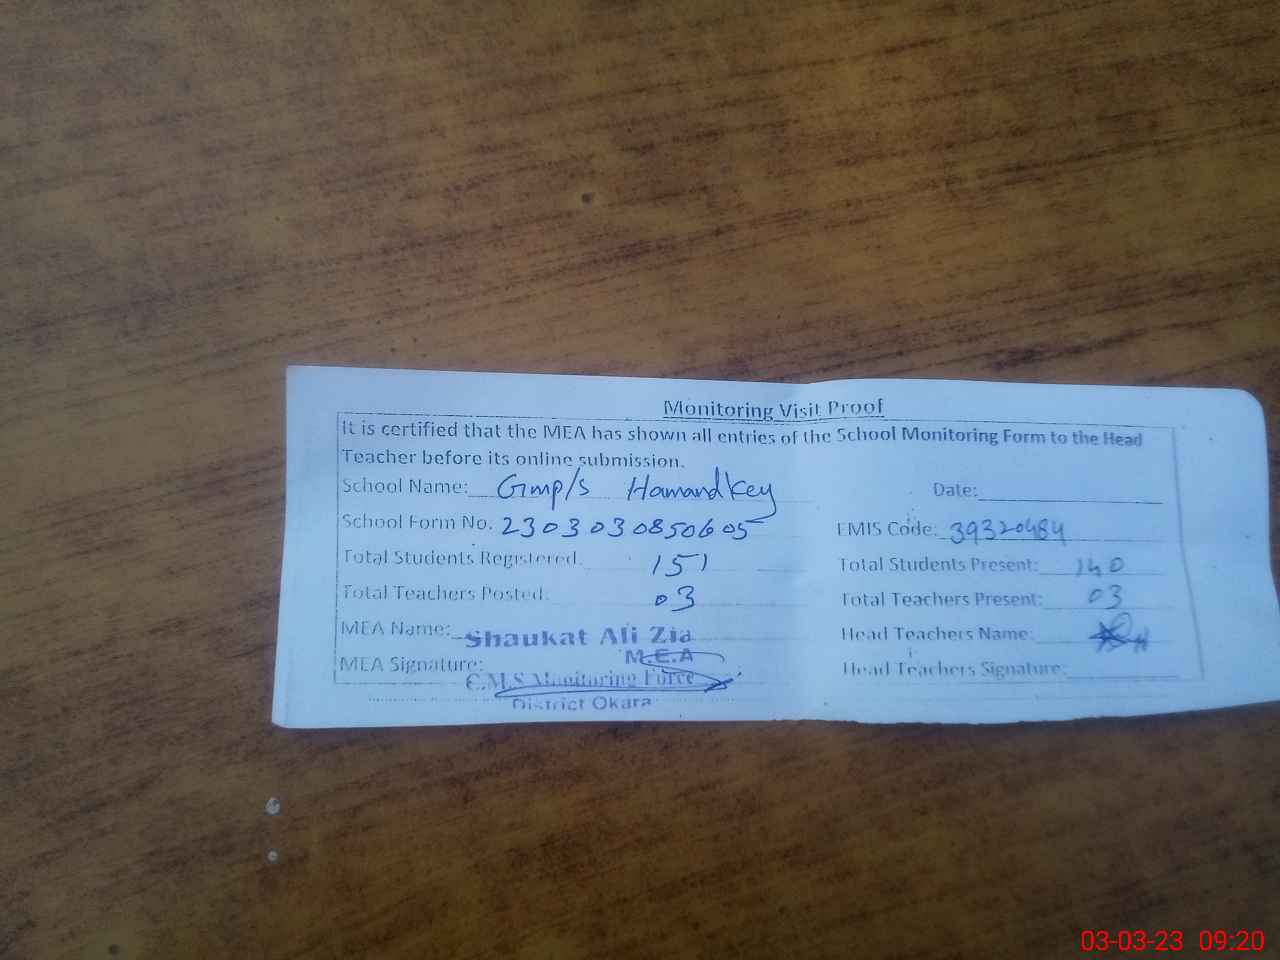 Monitoring Visit Proof
It is certified that the MEA has shown all entries of the School Monitoring Form to the Head
Teacher before its online submission.
School Name: Gmp/s Hamand Key Date:
School Form No. 2303030850605 EMIS Code: 39320484
Total Students Registered: 151 Total Students Present: 140
Total Teachers Posted: 03 Total Teachers Present: 03
MEA Name: Shaukat Ali Zia Head Teachers Name:
M.E.A
MEA Signature: C.M.S Monitoring Force Head Teachers Signature:
District Okara
03-03-23 09:20